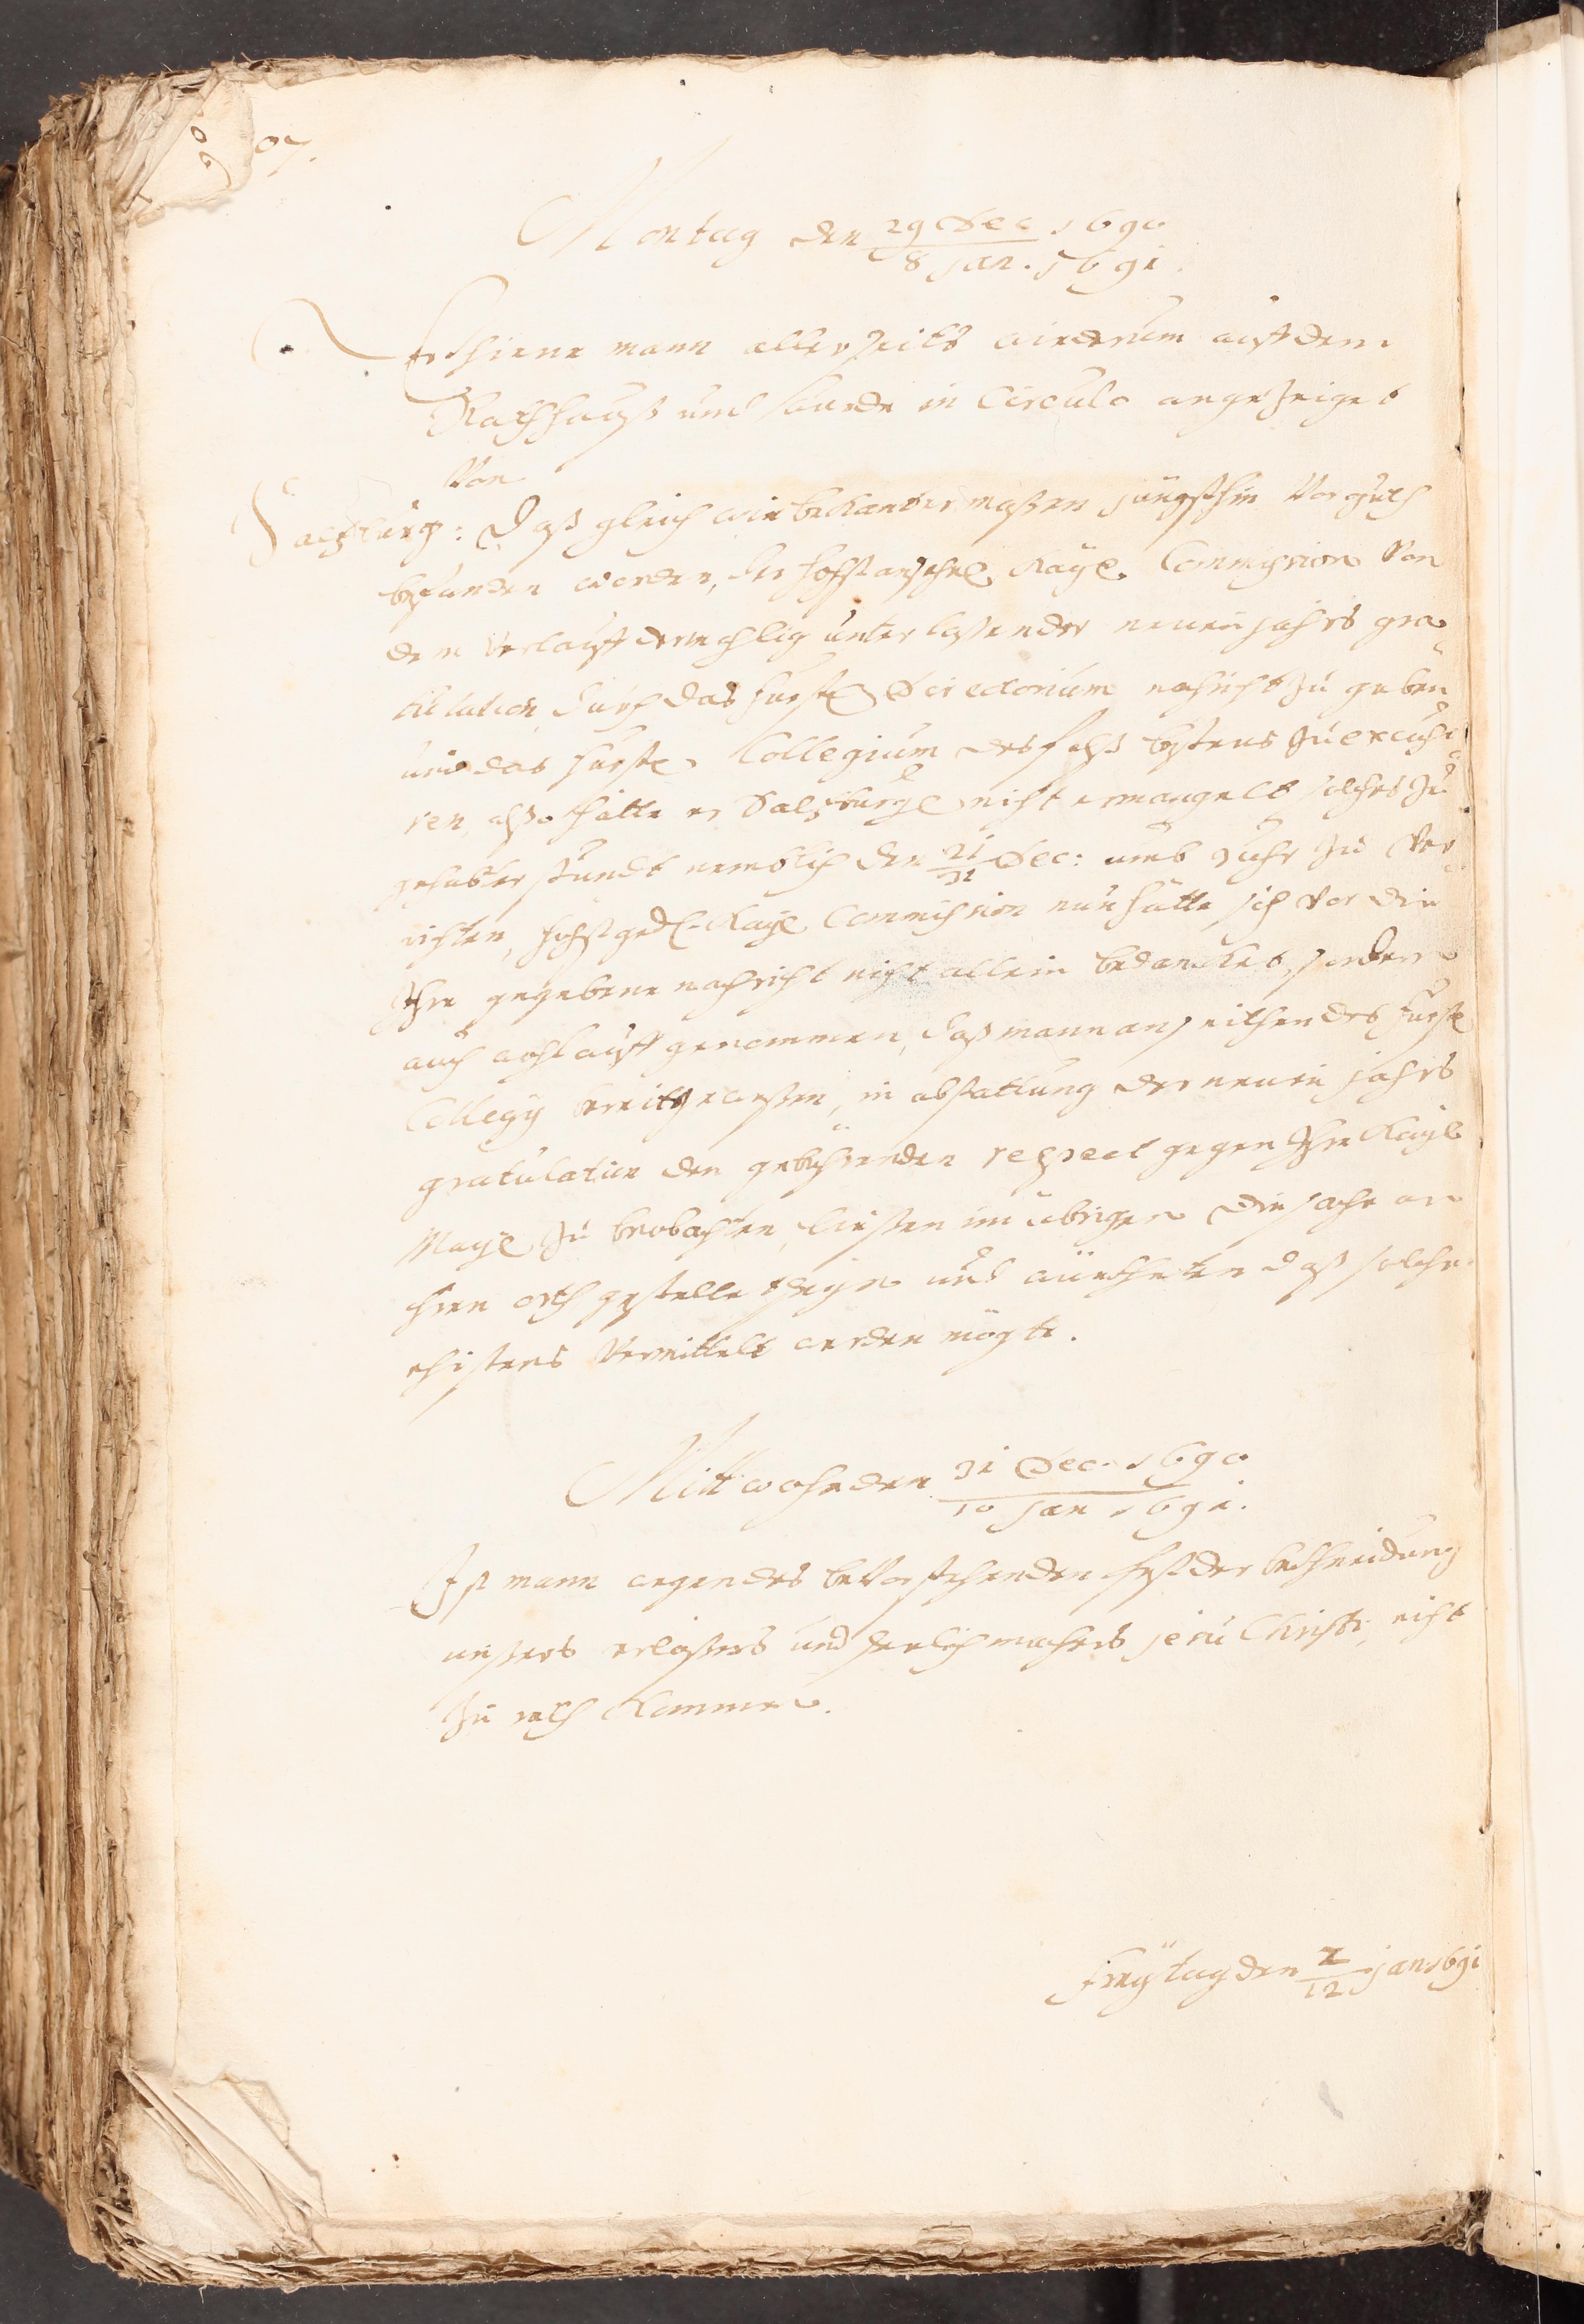 97.
Montag den 29 Dec. 1690
8 Jan. 1691.
Erschiene mann allerseits wiederum auff dem
Rathhauß und wurde in Circulo angezeiget
Von
Saltzburg: Daß gleich wie bekandter maßen jüngsthin Vor guth
befunden worden, der hochstansehel. Kaÿl. Commission Von
dem Verlauff dermahlig unterlaßender neuen jahrs gra-
tulation durch das Fürstl. Directorium nachricht zu geben
und das Fürstl. Collegium desfalß bestens zu excusi-
ren, also hätte er Saltzburgl. nicht ermangelt solches zu
gehabter stundt nemblich den 21/31 Dec: umb 3 uhr zu Ver-
richten, höchstged. Kaÿl. Commission nun hätte sich vor die
Ihr gegebene nachricht nicht allein bedancket, sondern
auch wohl auff genommen, daß mann an seithen des Fürstl.
Collegÿ bereith gewesßen, in abstattung der neuen jahrs
gratulation den gebührenden respect gegen Ihre Kaÿl.
Maÿl. zu beobachten, ließen im übrigen die sache an
ihren orth gestellet seÿn und wünscheten daß solche
ehistens Vermittelt werden mögte.
Mittwoche den 31 Dec. 1690
10 Jan 1691.
Ist mann wegen des bevorstehenden fest der beschneidung
unsers erlößers und seeligmachers jesu Christi, nicht
zu rath kommen.
Freÿtag den 2/12 jan 1691